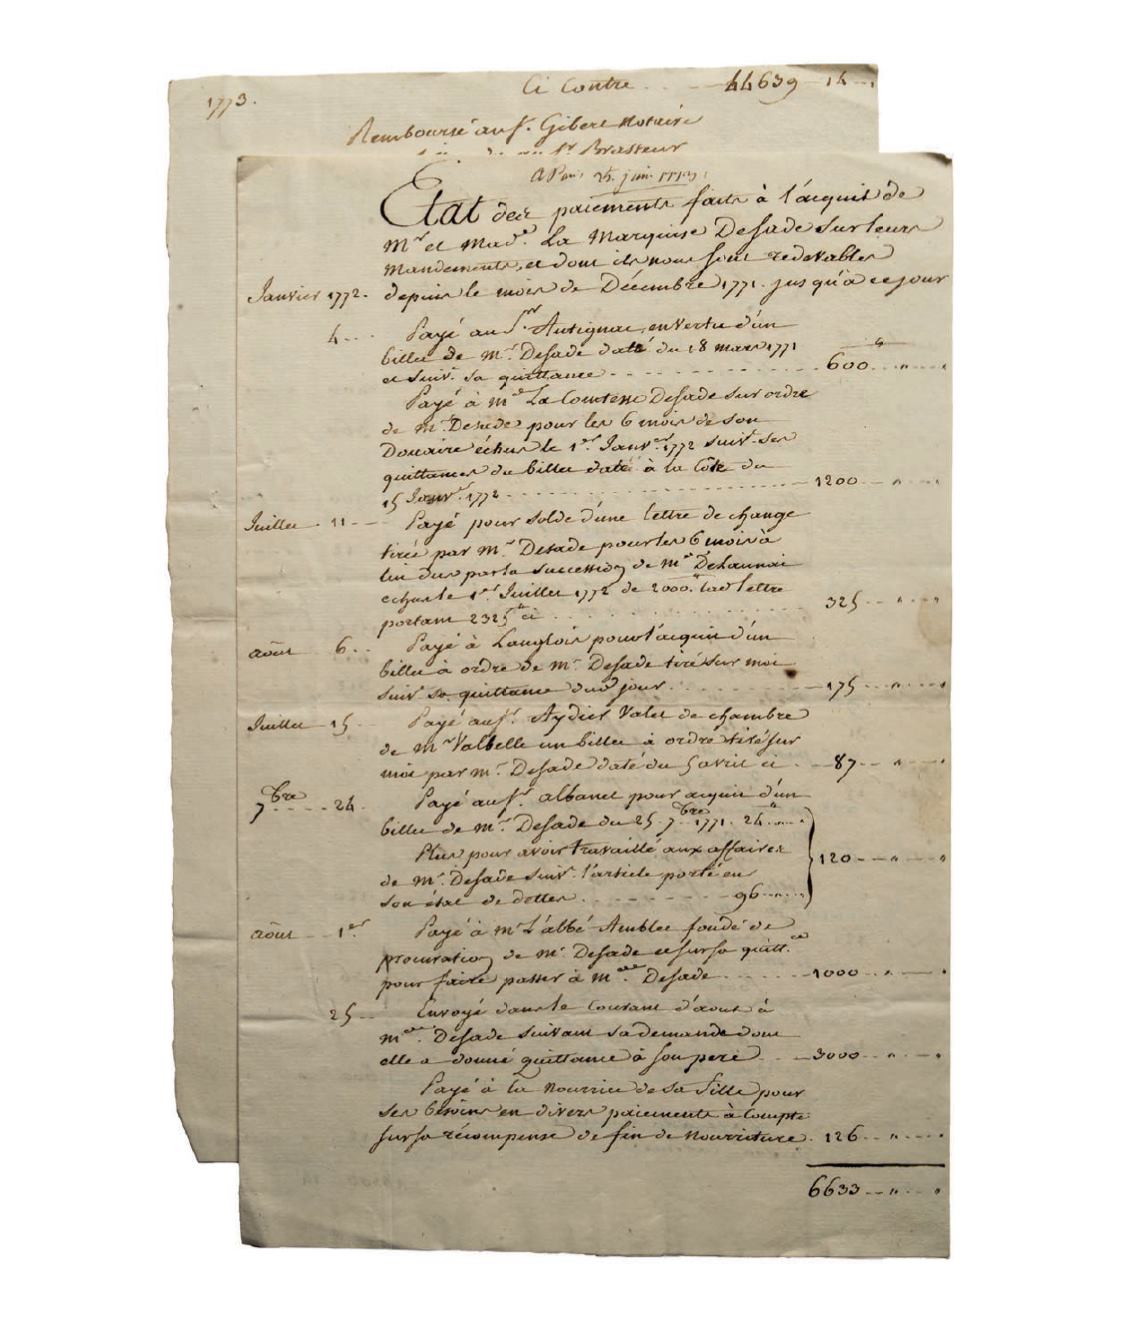 1773.
Ci Contre 44639 - 14
Remboursé au Sr. Gibert Notaire
Sr Brasseur
A Paris 25. juin 1773.
Etat des paiements faits à l'acquit de
Mr et Made. La Marquise Desade sur leurs
Mandements, et dont ils nous sont redevables
Janvier 1772. depuis le mois de Décembre 1771. jusqu'à ce jour
4 Payé au Sr. Autignac, en vertu d'un
billet de Mr. Desade daté du 18 mars 1771
et suiv. sa quittance 600
Payé à Me La Comtesse Desade sur ordre
de Mr Desade pour les 6 mois de son
Douaire échus le 1er Janver 1772 suiv. ses
quittances du billet daté à la Côte du
15 Janvr. 1772 1200
Juillet 11 Payé pour solde d'une lettre de change
tirée par Mr. Desade pour les 6 mois à
lui dus par la succession de Mr Delaunai
echus le 1er Juillet 1772 de 2000. lad lettre
portant 2325 ci 325
août 6 Payé à Langlois pour l'acquit d'un
billet à ordre de Mr. Desade tiré sur moi
suiv. sa quittance dud jour 175
Juillet 15 Payé au Sr. Aydier Valet de chambre
de Mr Valbelle un billet à ordre tiré sur
moi par Mr. Desade daté du 5 avril ci 87
7bre 24 Payé au Sr. albanel pour acquit d'un
billet de Mr. Desade du 25 7bre 1771. 24
Plus pour avoir travaillé aux affaires
de Mr. Desade suiv. l'article porté en 120
son état de dettes 96
août 1er Payé à Mr L'abbé Amblet fondé de
procuration de Mr. Desade et sur sa quitt.ce
pour faire passer à Made. Desade 1000
25 Envoyé dans le Courant d'aout à
Made. Desade suivant sa demande dont
elle a donné quittance à son pere 3000
Payé à la Nourrice de sa fille pour
ses besoins en divers paiements à Compte
sur sa récompense de fin de Nourriture. 126
6633